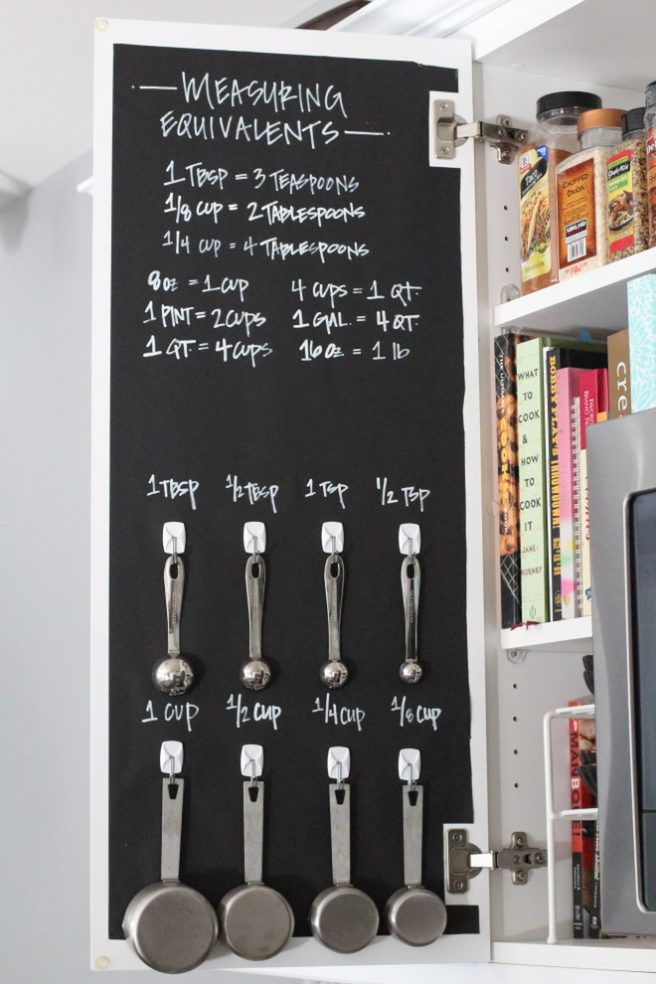 MEASURING
EQUIVALENTS
1 TBSP = 3 TEASPOONS
1/8 CUP = 2 TABLESPOONS
1/4 CUP = 4 TABLESPOONS
8 oz = 1 CUP
4 CUPS = 1 QT.
1 PINT = 2 CUPS
1 GAL. = 4 QT.
1 QT. = 4 CUPS
16 oz = 1 lb
1 TBSP
1/2 TBSP
1 TSP
1/2 TSP
1 CUP
1/2 CUP
1/4 CUP
1/8 CUP
Taco
CHOPPED
ONION
KIRKLAND
WHAT
TO
COOK
&
HOW
TO
COOK
IT
JANE
HORNBY
BOBBY FLAY'S
cre